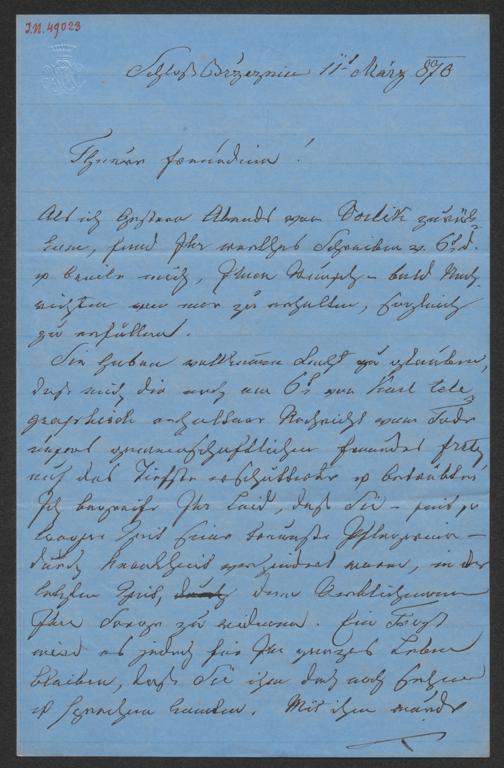 I.N. 49023
Schloß Březnic 11t März 870
Theure Freundin!
Als ich gestern Abends von Worlik zurück
kam, fand Ihr werthes Schreiben v. 6t d.
u beeile mich, Ihren Wunsch – bald Nach-
richten von mir zu erhalten, sogleich
zu erfüllen.
Sie haben vollkommen Recht zu glauben,
daß mich die noch am 6t von Karl tele-
graphisch erhaltene Nachricht vom Tode
unseres gemeinschaftlichen Freundes Fritz
auf das Tiefste erschütterte u betrübte.
Ich begreife Ihr Leid, daß Sie – seit so
langer Zeit seine treueste Pflegerin –
durch Krankheit verhindert waren, in der
letzten Zeit, dem Verblichenen
Ihre Sorge zu widmen. Ein Trost
wird es jedoch für Ihr ganzes Leben
bleiben, daß Sie ihn doch noch sehen
u sprechen konnten. Mit ihm wurde